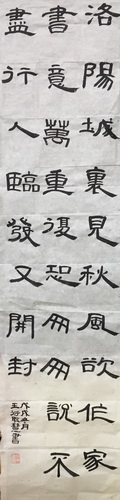 洛陽城裏見秋風欲作家
書意萬重復恐匆匆說不
盡行人臨發又開封
戊戌